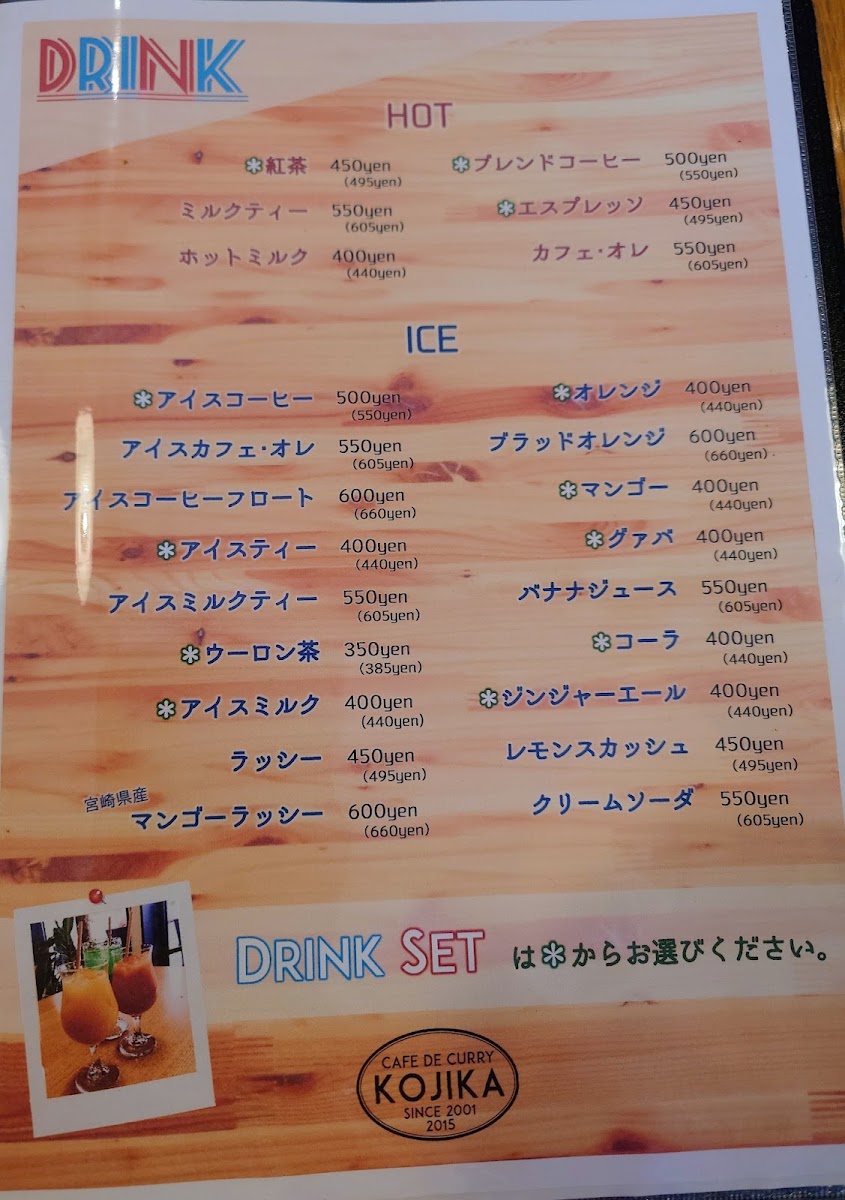 DRINK
HOT
✽紅茶 450yen
(495yen)
ミルクティー 550yen
(605yen)
ホットミルク 400yen
(440yen)
✽ブレンドコーヒー 500yen
(550yen)
✽エスプレッソ 450yen
(495yen)
カフェ・オレ 550yen
(605yen)
ICE
✽アイスコーヒー 500yen
(550yen)
アイスカフェ・オレ 550yen
(605yen)
アイスコーヒーフロート 600yen
(660yen)
✽アイスティー 400yen
(440yen)
アイスミルクティー 550yen
(605yen)
✽ウーロン茶 350yen
(385yen)
✽アイスミルク 400yen
(440yen)
ラッシー 450yen
(495yen)
宮崎県産
マンゴーラッシー 600yen
(660yen)
✽オレンジ 400yen
(440yen)
ブラッドオレンジ 600yen
(660yen)
✽マンゴー 400yen
(440yen)
✽グァバ 400yen
(440yen)
バナナジュース 550yen
(605yen)
✽コーラ 400yen
(440yen)
✽ジンジャーエール 400yen
(440yen)
レモンスカッシュ 450yen
(495yen)
クリームソーダ 550yen
(605yen)
DRINK SET は✽からお選びください。
CAFE DE CURRY
KOJIKA
SINCE 2001
2015